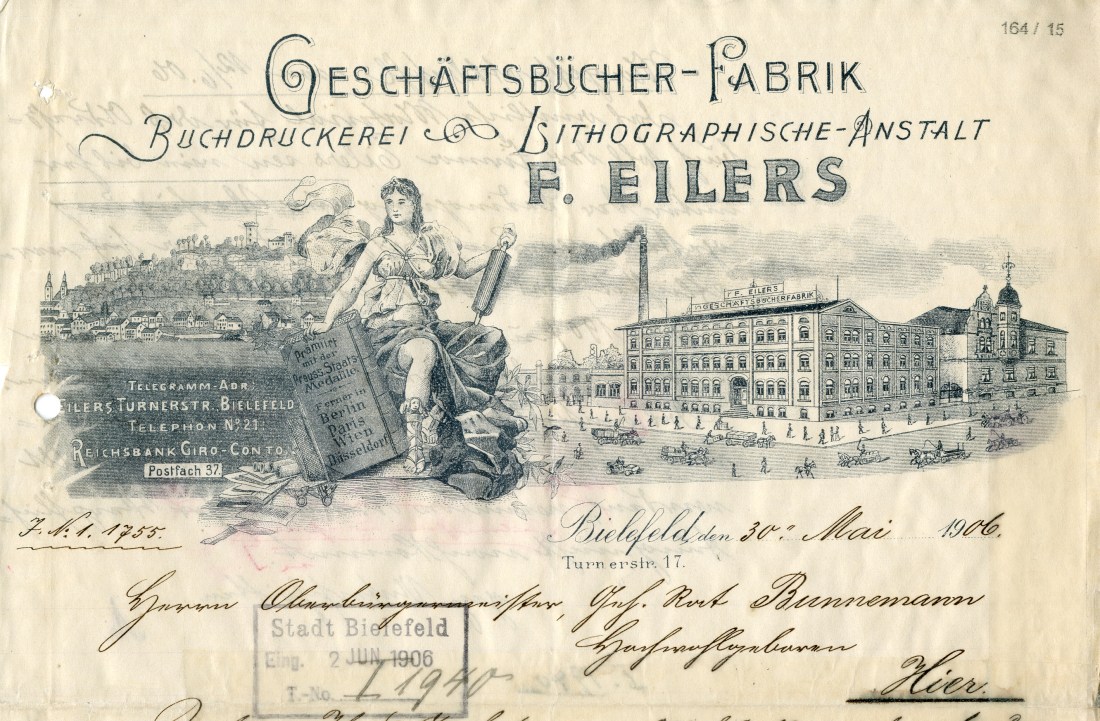 164 / 15
GESCHÄFTSBÜCHER-FABRIK
BUCHDRUCKEREI LITHOGRAPHISCHE-ANSTALT
F. EILERS
F. EILERS
GESCHÄFTSBÜCHERFABRIK
Prämiiert
mit der
Preuss. Staats-
Medaille
Ferner in
Berlin
Paris
Wien
Düsseldorf
TELEGRAMM-ADR:
EILERS TURNERSTR. BIELEFELD
TELEPHON No 21.
REICHSBANK GIRO-CONTO.
Postfach 37.
J. No. 1. 1755.
Bielefeld, den 30. Mai 1906.
Turnerstr. 17.
Herrn Oberbürgermeister, Geh. Rat Bunnemann
Hochwohlgeboren
Hier.
Stadt Bielefeld
Eing. 2 JUN 1906
T.-No. I 1940